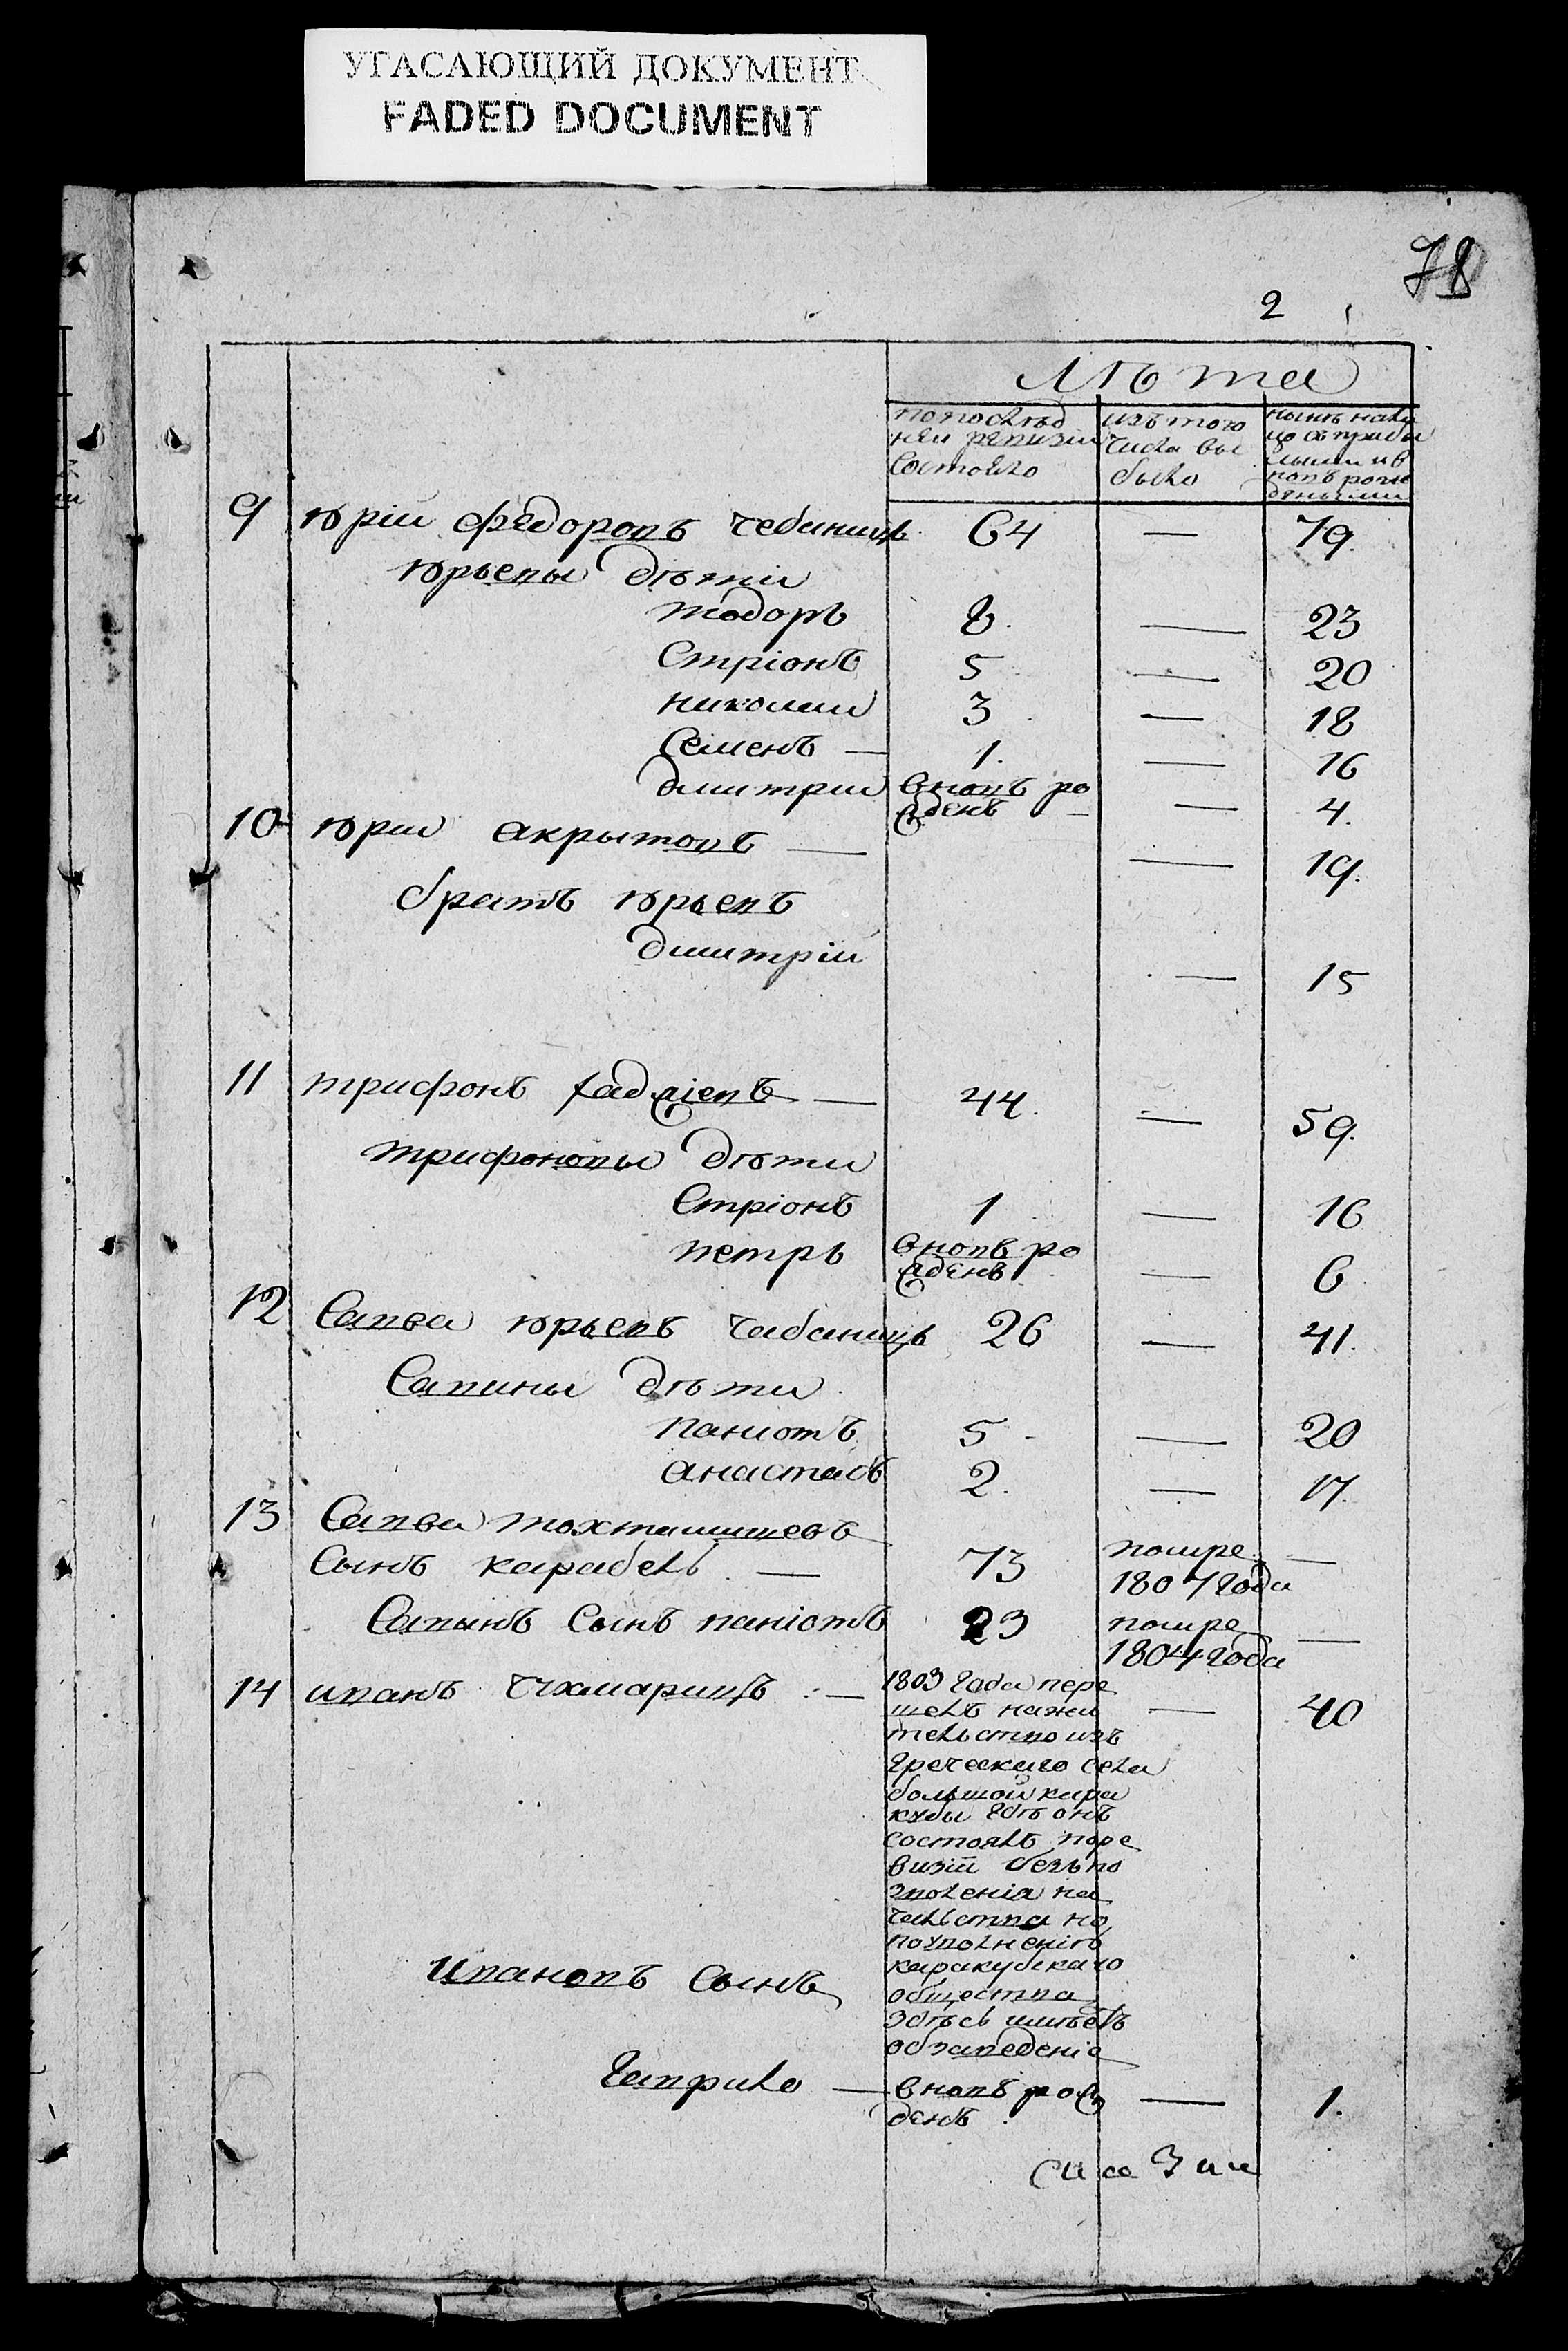 УГАСАЮЩИЙ ДОКУМЕНТ
FADED DOCUMENT
78
2
Лѣта
попослѣд
ней ревизіи
состояло
изътого
числа вы
было
нынѣ нали
цо съ прибы
лыми и в
новъ рож
деными
9 юрій федоровъ чебаницъ 64 — 79.
юрьевы дѣти
тодоръ 8. — 23
Стріонъ 5 — 20
николаи 3 — 18
Семенъ — 1. — 16
дмитрии вновъ ро
жденъ — — 4.
10 юрии акрытовъ — — 19.
братъ юрьевъ
дмитрій — 15
11 трифонъ хаджіевъ — 44. — 59.
трифоновы дѣти
Стріонъ 1 — 16
петръ вновъ ро
жденъ — 6
12 Савва юрьевъ чабаницъ 26 — 41.
Савины дѣти
паниотъ 5 — 20
анастасъ 2. — 17.
13 Савва тохтамишевъ
Сынъ карабелъ — 73 помре —
1807 года
Савынъ Сынъ паніотъ 23 помре —
1804 года
14 иванъ чхмарицъ — 1803 года пере — 40
шелъ нажи
тельство изъ
греческаго села
большой кара
кубы гдѣ онъ
состоялъ поре
визіи безъ по
зволенія на
чальства но
поуволненію
каракубскаго
Ивановъ Сынъ
общества
здѣсь имѣетъ
обзаведеніе
Гаврило — вновъ рож — 1.
денъ